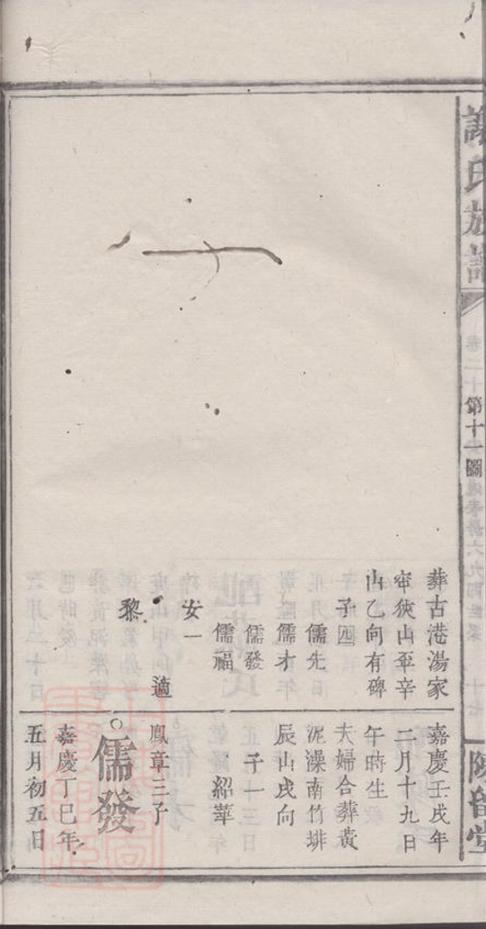 謝氏族譜
第十一圖
葬古港湯家
窂狹山平辛
山乙向有碑
子四
儒先
儒才
儒發
儒福
女一
適
黎
嘉慶壬戌年
二月十九日
午時生
夫婦合葬黃
泥澡南竹塅
辰山戌向
子一
紹華
鳳章三子
儒發
嘉慶丁巳年
五月初五日